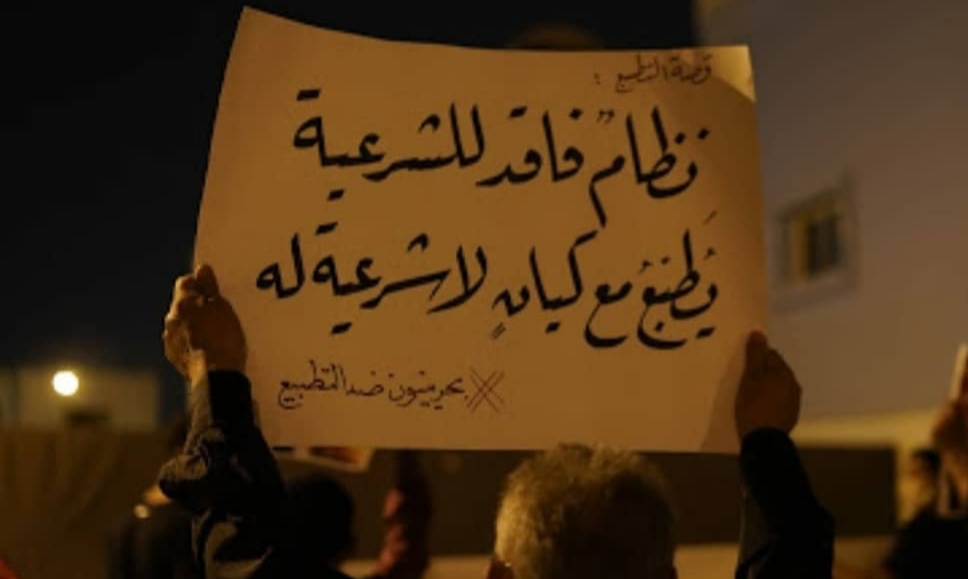 قصة التطبيع :
نظامٌ فاقد للشرعية
يُطَبّعُ مع كيانٍ لا شرعية له
# بحرينيون ضد التطبيع